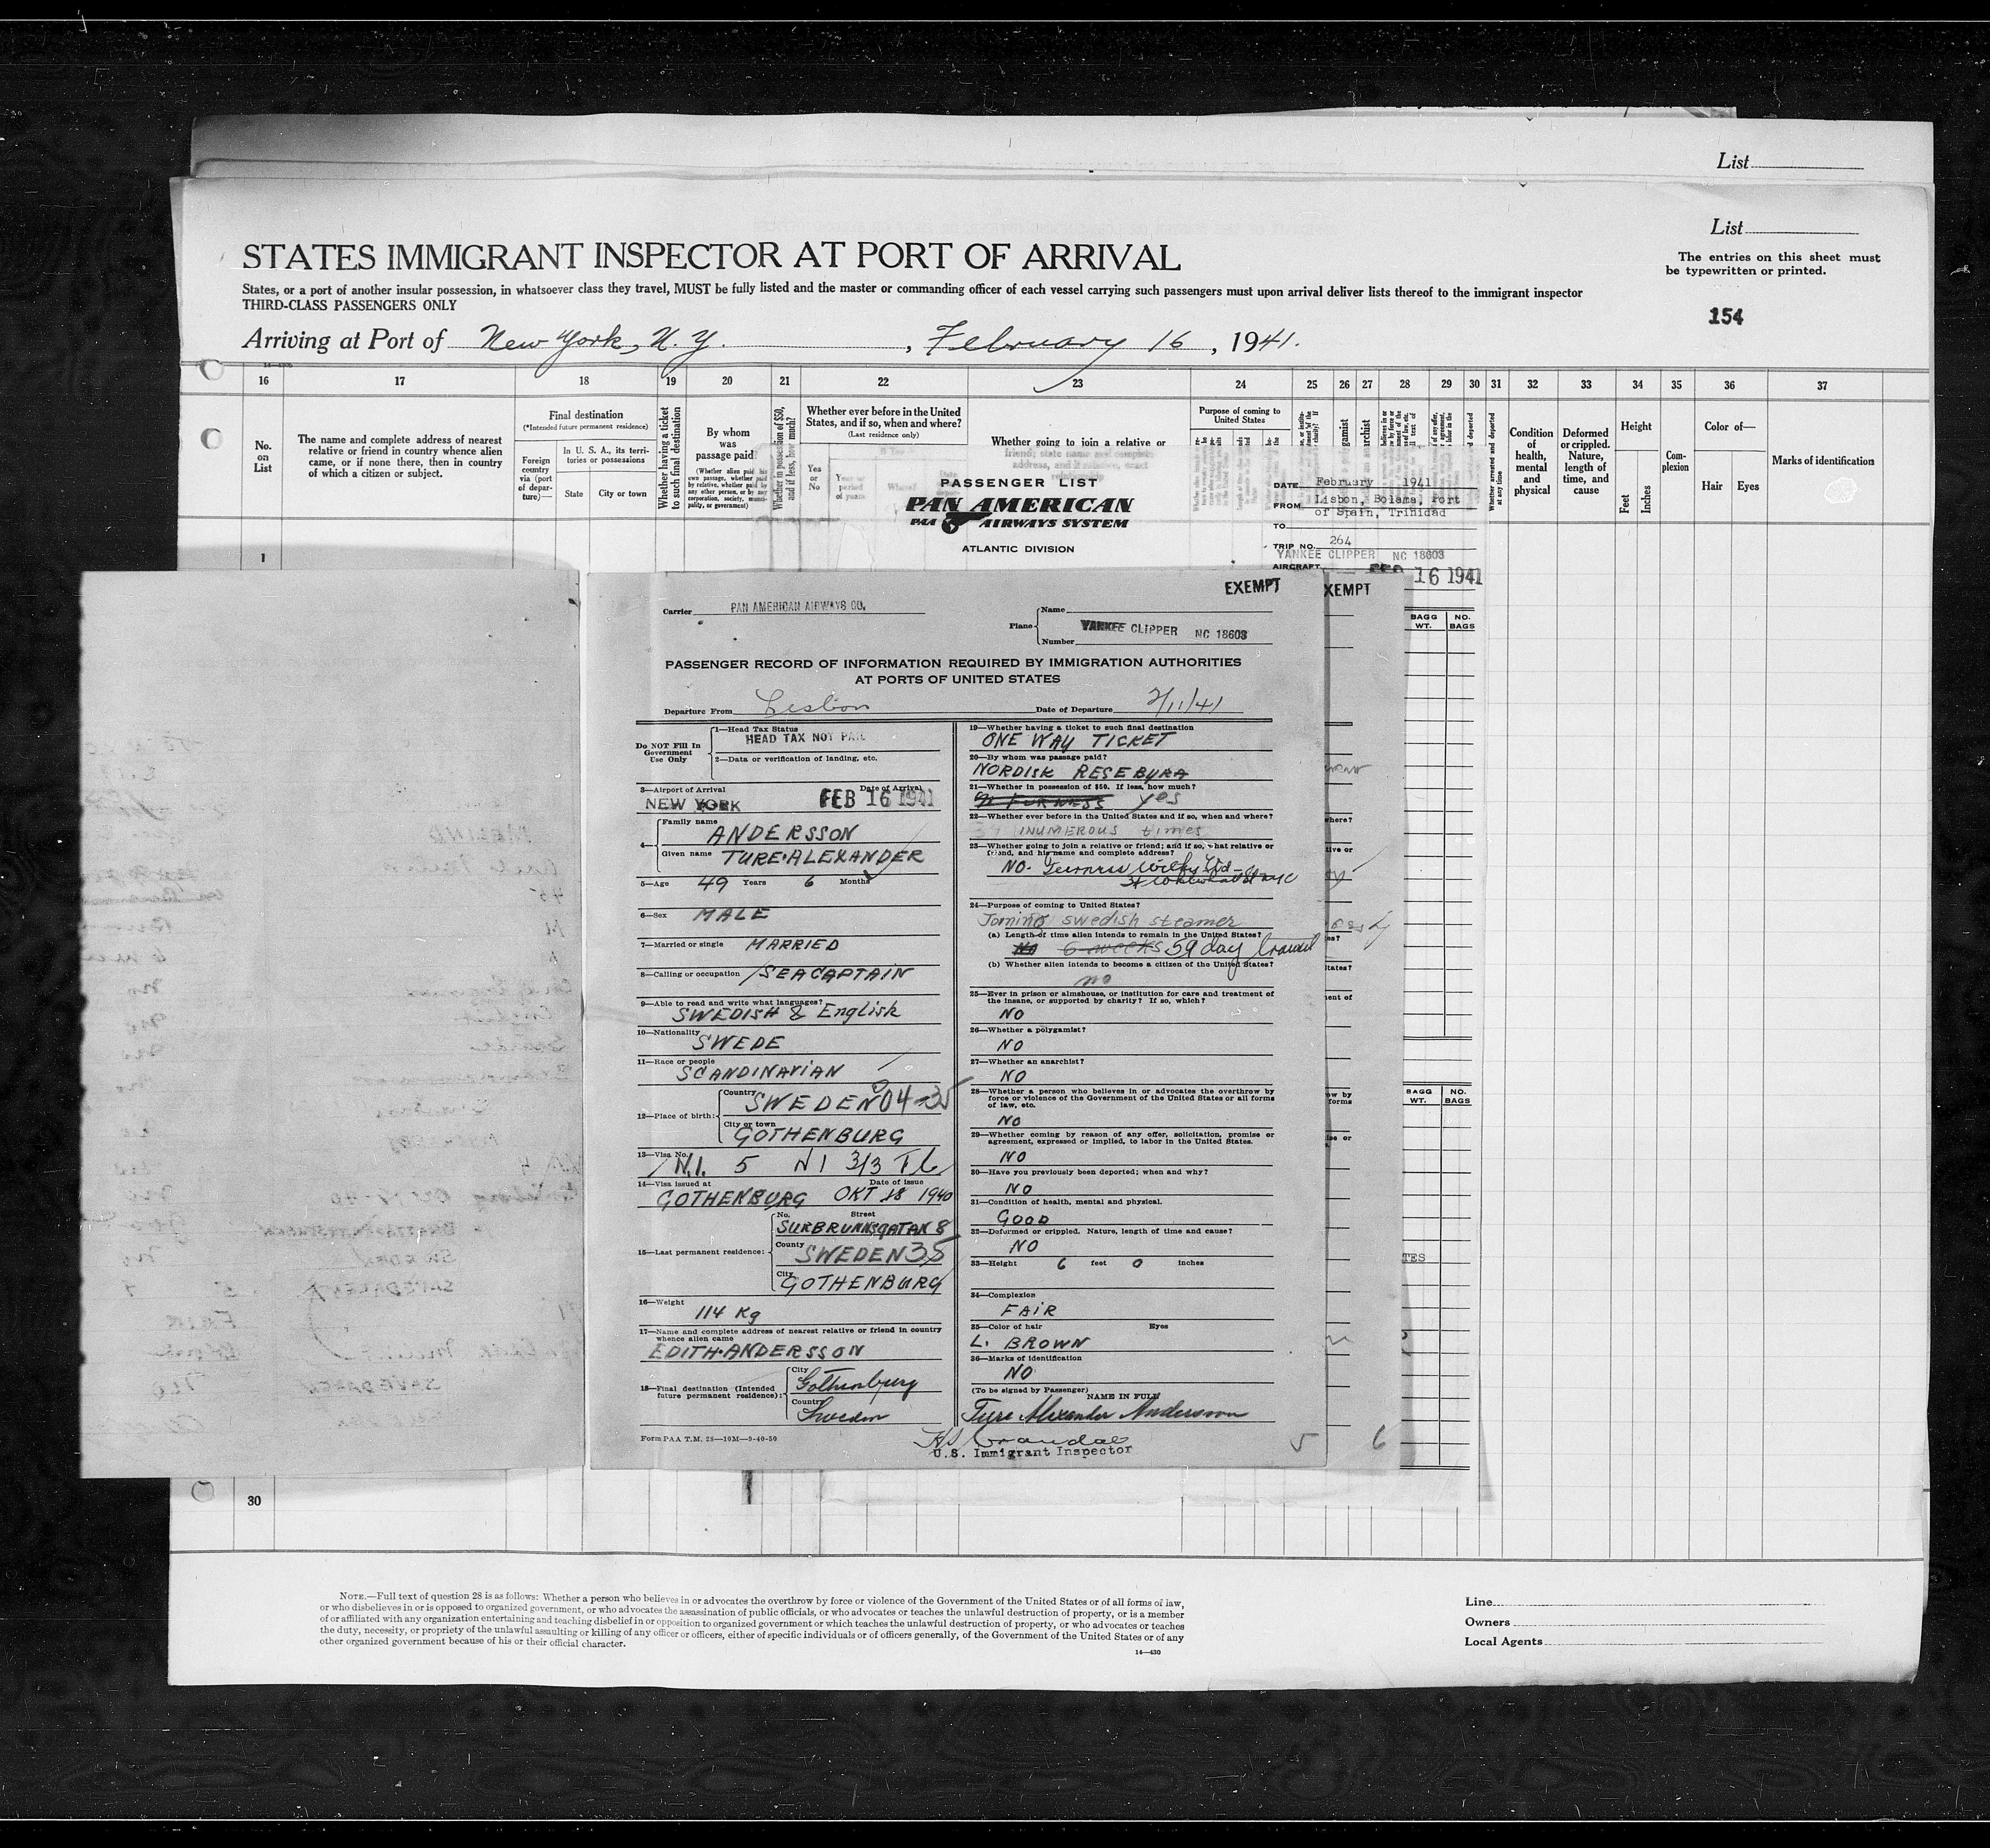 List
List
STATES IMMIGRANT INSPECTOR AT PORT OF ARRIVAL
The entries on this sheet must
be typewritten or printed.
States, or a port of another insular possession, in whatsoever class they travel, MUST be fully listed and the master or commanding officer of each vessel carrying such passengers must upon arrival deliver lists thereof to the immigrant inspector
THIRD-CLASS PASSENGERS ONLY
154
Arriving at Port of New York, N. Y. , February 16 , 1941.
16 17 18 19 20 21 22 23 24 25 26 27 28 29 30 31 32 33 34 35 36 37
No.
on
List
The name and complete address of nearest
relative or friend in country whence alien
came, or if none there, then in country
of which a citizen or subject.
Final destination
(*Intended future permanent residence)
Foreign
country
via (port
of depar-
ture)—
In U. S. A., its terri-
tories or possessions
State City or town
Whether having a ticket
to such final destination
By whom
was
passage paid
(Whether alien paid his
own passage, whether paid
by relative, whether paid by
any other person, or by any
corporation, society, munici-
pality, or government)
Whether in possession of $50,
and if less, how much?
Whether ever before in the United
States, and if so, when and where?
(Last residence only)
Yes
or
No
Year or
period
of years
Where?
Whether going to join a relative or
friend; state name and complete
address, and if relative, exact
relationship
Purpose of coming to
United States
Whether arrested and deported
at any time
Condition
of
health,
mental
and
physical
Deformed
or crippled.
Nature,
length of
time, and
cause
Height
Feet
Inches
Com-
plexion
Color of—
Hair Eyes
Marks of identification
PASSENGER LIST
PAN AMERICAN
PAA AIRWAYS SYSTEM
ATLANTIC DIVISION
DATE February 1941
FROM Lisbon, Bolama, Port
of Spain, Trinidad
TO
TRIP NO. 264
YANKEE CLIPPER NC 18603
AIRCRAFT
FEB 16 1941
1
EXEMPT
XEMPT
BAGG
WT.
NO.
BAGS
Carrier PAN AMERICAN AIRWAYS CO.
Plane Name
YANKEE CLIPPER NC 18603
Number
PASSENGER RECORD OF INFORMATION REQUIRED BY IMMIGRATION AUTHORITIES
AT PORTS OF UNITED STATES
Departure From Lisbon Date of Departure 2/11/41
Do NOT Fill In
Government
Use Only
1—Head Tax Status
HEAD TAX NOT PAID
2—Data or verification of landing, etc.
3—Airport of Arrival Date of Arrival
NEW YORK FEB 16 1941
4— Family name ANDERSSON
Given name TURE ALEXANDER
5—Age 49 Years 6 Months
6—Sex MALE
7—Married or single MARRIED
8—Calling or occupation SEACAPTAIN
9—Able to read and write what languages?
SWEDISH & English
10—Nationality
SWEDE
11—Race or people
SCANDINAVIAN
12—Place of birth: Country
SWEDEN 04-35
City or town
GOTHENBURG
13—Visa No.
N.I. 5 NI 3/3
14—Visa issued at Date of issue
GOTHENBURG OKT 18 1940
15—Last permanent residence: No. Street
SURBRUNNSGATAN 8
County
SWEDEN 35
City
GOTHENBURG
16—Weight
114 Kg
17—Name and complete address of nearest relative or friend in country
whence alien came
EDITH ANDERSSON
18—Final destination (Intended
future permanent residence): City
Gothenburg
Country
Sweden
Form PAA T.M. 28—10M—9-40-50
19—Whether having a ticket to such final destination
ONE WAY TICKET
20—By whom was passage paid?
NORDISK RESEBYRA
21—Whether in possession of $50. If less, how much?
FURNESS yes
22—Whether ever before in the United States and if so, when and where?
NUMEROUS times
23—Whether going to join a relative or friend; and if so, what relative or
friend, and his name and complete address?
NO- Furness Withy Ltd
24—Purpose of coming to United States?
Joining swedish steamer
(a) Length of time alien intends to remain in the United States?
No 6 weeks 59 day
(b) Whether alien intends to become a citizen of the United States?
no
25—Ever in prison or almshouse, or institution for care and treatment of
the insane, or supported by charity? If so, which?
NO
26—Whether a polygamist?
NO
27—Whether an anarchist?
NO
28—Whether a person who believes in or advocates the overthrow by
force or violence of the Government of the United States or all forms
of law, etc.
NO
29—Whether coming by reason of any offer, solicitation, promise or
agreement, expressed or implied, to labor in the United States.
NO
30—Have you previously been deported; when and why?
NO
31—Condition of health, mental and physical.
GOOD
32—Deformed or crippled. Nature, length of time and cause?
NO
33—Height 6 feet 0 inches
34—Complexion
FAIR
35—Color of hair Eyes
L. BROWN
36—Marks of identification
NO
(To be signed by Passenger)
NAME IN FULL
Ture Alexander Andersson
U.S. Immigrant Inspector
5
6
BAGG
WT.
NO.
BAGS
30
NOTE.—Full text of question 28 is as follows: Whether a person who believes in or advocates the overthrow by force or violence of the Government of the United States or of all forms of law,
or who disbelieves in or is opposed to organized government, or who advocates the assassination of public officials, or who advocates or teaches the unlawful destruction of property, or is a member
of or affiliated with any organization entertaining and teaching disbelief in or opposition to organized government or which teaches the unlawful destruction of property, or who advocates or teaches
the duty, necessity, or propriety of the unlawful assaulting or killing of any officer or officers, either of specific individuals or of officers generally, of the Government of the United States or of any
other organized government because of his or their official character.
14—430
Line
Owners
Local Agents